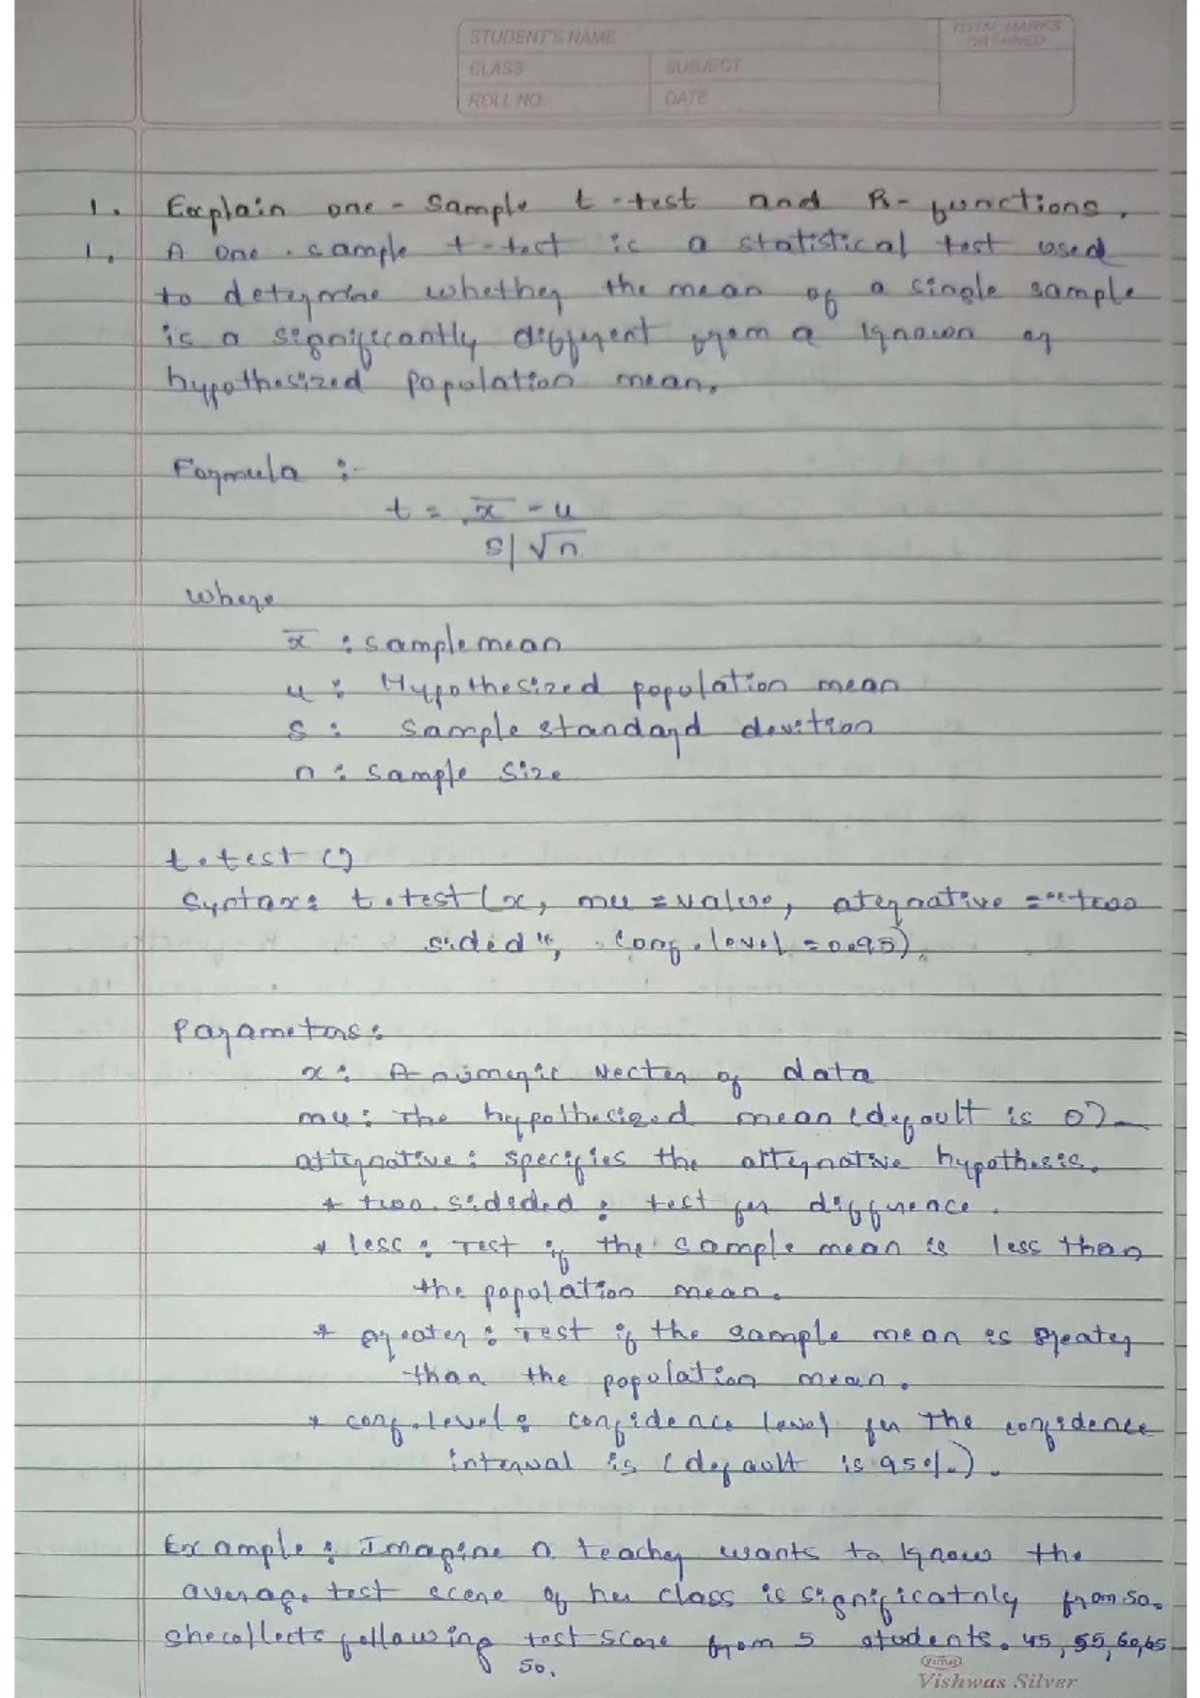 STUDENT'S NAME
TOTAL MARKS
OBTAINED
CLASS
SUBJECT
ROLL NO.
DATE
1. Explain one-sample t-test and R-functions.
1. A one-sample t-test is a statistical test used
to determine whether the mean of a single sample
is a significantly different from a known or
hypothesized population mean.
Formula :-
t = x̄ - u
s/√n
where
x̄ : sample mean
u : Hypothesized population mean
s : sample standard devition
n : sample size
t.test ()
Syntax: t.test (x, mu = value, aternative = "two
sided", conf.level = 0.95).
Parameters:
x : A numeric Vector of data
mu : The hypothesized mean (default is 0)
alternative : specifies the alternative hypothesis.
* two.sideded : test for difference.
* less : Test if the sample mean is less than
the population mean.
* greater : Test if the sample mean is greater
than the population mean.
* conf.level : confidence level for the confidence
interval is (default is 95%).
Example : Imagine a teacher wants to know the
average test score of her class is significatnly from 50.
she collects following test score from 5 students. 45, 55, 60, 65
50.
Vishwas Silver